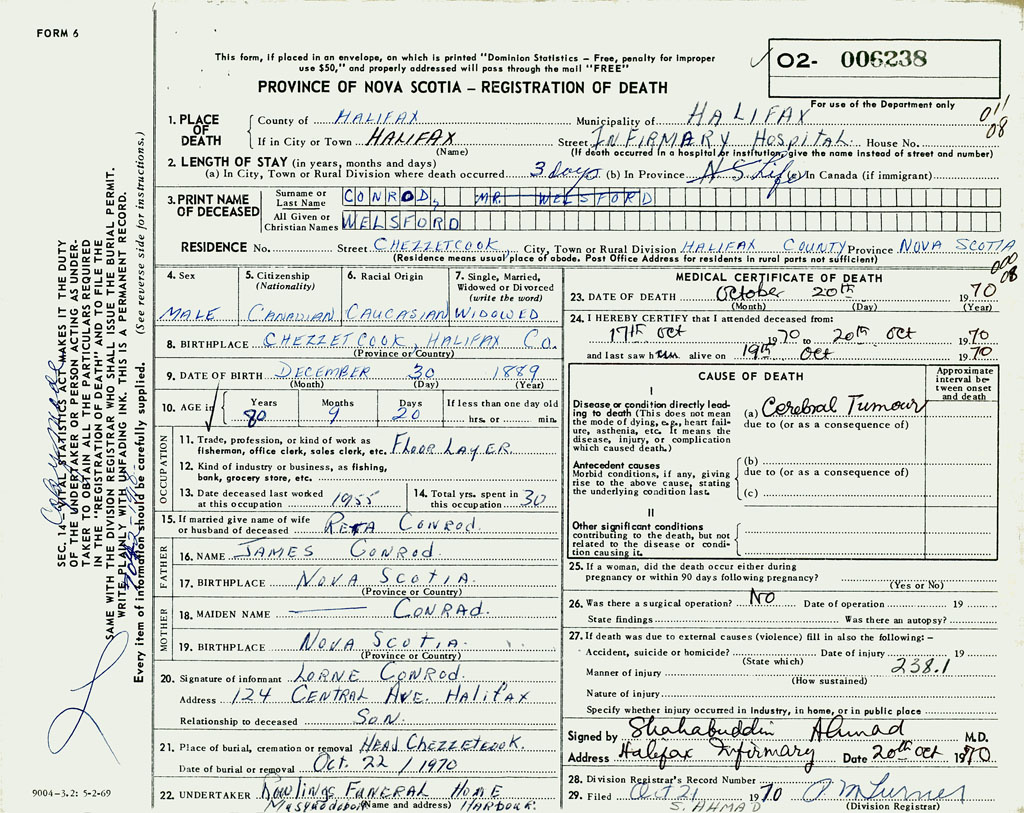 FORM 6
This form, if placed in an envelope, on which is printed "Dominion Statistics – Free, penalty for improper
use $50," and properly addressed will pass through the mail "FREE"
O2- 006238
For use of the Department only
PROVINCE OF NOVA SCOTIA – REGISTRATION OF DEATH
011
08
1. PLACE OF DEATH { County of HALIFAX Municipality of HALIFAX
If in City or Town HALIFAX Street INFIRMARY HOSPITAL. House No.
(Name) (If death occurred in a hospital or institution, give the name instead of street and number)
2. LENGTH OF STAY (in years, months and days)
(a) In City, Town or Rural Division where death occurred 3 days (b) In Province N.S. Life (c) In Canada (if immigrant)
3. PRINT NAME OF DECEASED Surname or Last Name CONROD, MR. WELSFORD
All Given or Christian Names WELSFORD
RESIDENCE No. Street CHEZZETCOOK City, Town or Rural Division HALIFAX COUNTY Province NOVA SCOTIA
(Residence means usual place of abode. Post Office Address for residents in rural parts not sufficient)
000
08
4. Sex 5. Citizenship (Nationality) 6. Racial Origin 7. Single, Married, Widowed or Divorced (write the word)
MALE CANADIAN CAUCASIAN WIDOWED
8. BIRTHPLACE CHEZZETCOOK, HALIFAX CO.
(Province or Country)
9. DATE OF BIRTH DECEMBER 30 1889
(Month) (Day) (Year)
10. AGE in { Years Months Days If less than one day old
80 9 20 hrs. or min.
OCCUPATION
11. Trade, profession, or kind of work as
fisherman, office clerk, sales clerk, etc. FLOOR LAYER
12. Kind of industry or business, as fishing,
bank, grocery store, etc.
13. Date deceased last worked at this occupation 1955 14. Total yrs. spent in this occupation 30
15. If married give name of wife
or husband of deceased RETA CONROD.
FATHER
16. NAME JAMES CONROD.
17. BIRTHPLACE NOVA SCOTIA
(Province or Country)
MOTHER
18. MAIDEN NAME CONRAD.
19. BIRTHPLACE NOVA SCOTIA.
(Province or Country)
20. Signature of informant LORNE CONROD.
Address 124 CENTRAL AVE. HALIFAX
Relationship to deceased SON.
21. Place of burial, cremation or removal HEAD CHEZZETCOOK.
Date of burial or removal OCT. 22 / 1970
22. UNDERTAKER Rowlings FUNERAL HOME
Musquodoboit (Name and address) HARBOUR.
MEDICAL CERTIFICATE OF DEATH
23. DATE OF DEATH October 20th 1970
(Month) (Day) (Year)
24. I HEREBY CERTIFY that I attended deceased from:
17th Oct 1970 to 20th Oct 1970
and last saw him alive on 19th Oct 1970
CAUSE OF DEATH
Approximate interval between onset and death
I
Disease or condition directly leading
to death (This does not mean
the mode of dying, e.g., heart failure,
asthenia, etc. It means the
disease, injury, or complication
which caused death.)
(a) Cerebral Tumour
due to (or as a consequence of)
Antecedent causes
Morbid conditions, if any, giving
rise to the above cause, stating
the underlying condition last.
(b)
due to (or as a consequence of)
(c)
II
Other significant conditions
contributing to the death, but not
related to the disease or condition
causing it.
25. If a woman, did the death occur either during
pregnancy or within 90 days following pregnancy?
(Yes or No)
26. Was there a surgical operation? NO Date of operation 19
State findings Was there an autopsy?
27. If death was due to external causes (violence) fill in also the following: –
Accident, suicide or homicide? Date of injury 19
(State which)
Manner of injury 238.1
(How sustained)
Nature of injury
Specify whether injury occurred in industry, in home, or in public place
Signed by Shahabuddin Ahmad M.D.
Address Halifax Infirmary Date 20th Oct 1970
28. Division Registrar's Record Number
29. Filed Oct 21 1970 P M Turner
S. AHMAD (Division Registrar)
SEC. 14 – VITAL STATISTICS ACT MAKES IT THE DUTY
OF THE UNDERTAKER OR PERSON ACTING AS UNDERTAKER
TO OBTAIN ALL THE PARTICULARS REQUIRED
IN THE "REGISTRATION OF DEATH" AND TO FILE THE
SAME WITH THE DIVISION REGISTRAR WHO SHALL ISSUE THE BURIAL PERMIT.
WRITE PLAINLY WITH UNFADING INK. THIS IS A PERMANENT RECORD.
Every item of information should be carefully supplied. (See reverse side for instructions.)
9004-3.2: 5-2-69